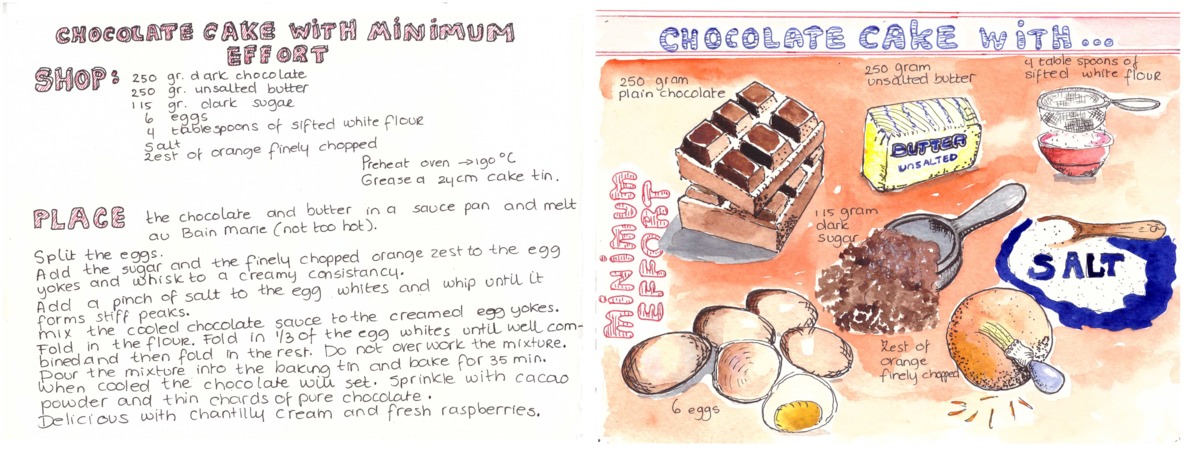 CHOCOLATE CAKE WITH MINIMUM
EFFORT
SHOP:
250 gr. dark chocolate
250 gr. unsalted butter
115 gr. dark sugar
6 eggs
4 tablespoons of sifted white flour
Salt
Zest of orange finely chopped
Preheat oven → 190 °C
Grease a 24cm cake tin.
PLACE the chocolate and butter in a sauce pan and melt
au Bain Marie (not too hot).
Split the eggs.
Add the sugar and the finely chopped orange zest to the egg
yokes and whisk to a creamy consistancy.
Add a pinch of salt to the egg whites and whip until it
forms stiff peaks.
Mix the cooled chocolate sauce to the creamed egg yokes.
Fold in the flour. Fold in 1/3 of the egg whites until well com-
bined and then fold in the rest. Do not over work the mixture.
Pour the mixture into the baking tin and bake for 35 min.
When cooled the chocolate will set. Sprinkle with cacao
powder and thin chards of pure chocolate.
Delicious with chantilly cream and fresh raspberries.
CHOCOLATE CAKE WITH...
MINIMUM
EFFORT
250 gram
plain chocolate
250 gram
unsalted butter
4 table spoons of
sifted white flour
BUTTER
UNSALTED
115 gram
dark
sugar
SALT
6 eggs
Zest of
orange
finely chopped